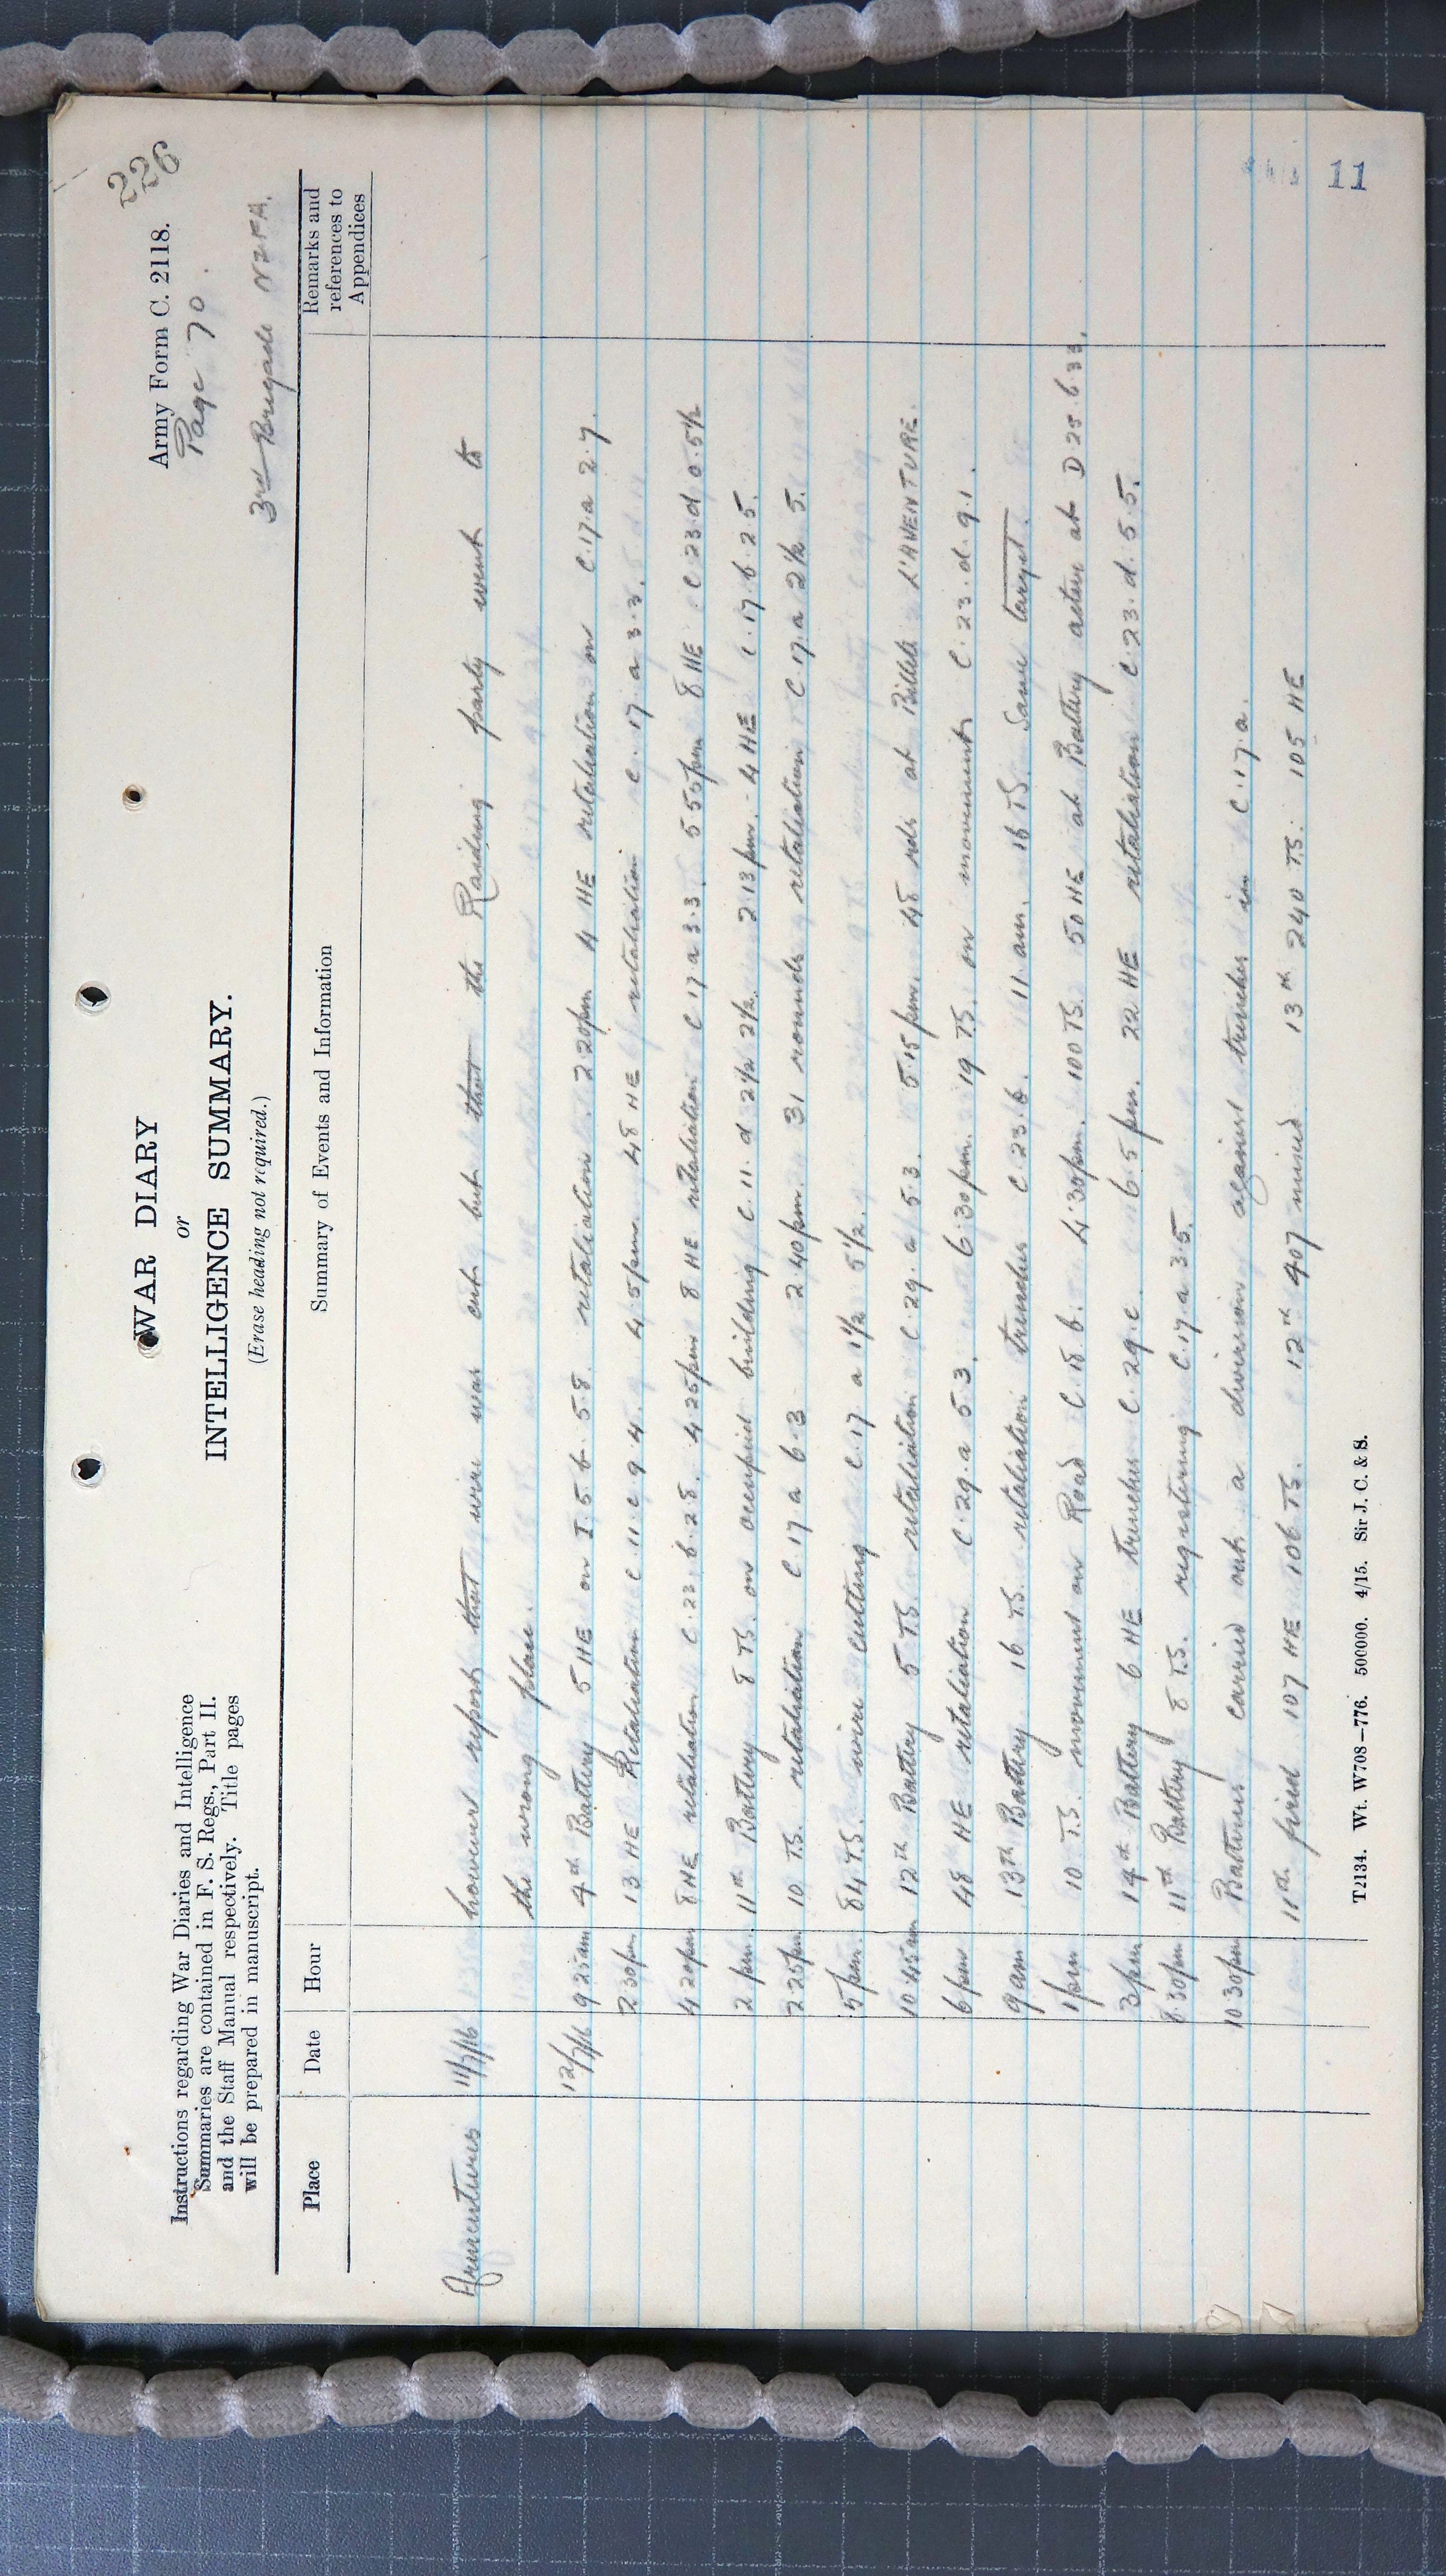 226
Army Form C. 2118.
Page 70.
3rd Brigade NZFA.
WAR DIARY
or
INTELLIGENCE SUMMARY.
(Erase heading not required.)
Instructions regarding War Diaries and Intelligence
Summaries are contained in F. S. Regs., Part II.
and the Staff Manual respectively. Title pages
will be prepared in manuscript.
Place Date Hour Summary of Events and Information Remarks and references to Appendices
Armentieres 11/7/16 however report that wire was cut but that the Raiding party went to
the wrong place.
12/7/16 9 25am 4th Battery 5 HE on I.5.b.5.8. retaliation. 2.20pm 4 HE retaliation on C.17.a 2.7.
2 30pm 13 HE Retaliation C.11.c 9.4. 4.5pm. 48 HE retaliation C.17.a 3.3.
4 20pm 8 HE retaliation C.23.b.2.8. 4.25pm 8 HE retaliation C 17 a 3.3. 5 55pm 8 HE C 23.d 0.5½
2 pm. 11th Battery 8 TS. on occupied building C.11.d 2½ 2½. 2.13pm. 4 HE C.17.b.2.5.
2.25pm 10 TS. retaliation C.17.a 6.3 2.40pm. 31 rounds retaliation C.17.a 2½ 5.
5pm. 84 TS. wire cutting C.17 a 1½ 5½.
10.45am 12th Battery 5 TS retaliation C.29.a 5.3. 5.15pm. 48 rds at Billets L'AVENTURE.
6pm 48 HE retaliation C.29.a 5.3. 6.30pm. 19 TS. on movement C.23.d.9.1.
9am 13th Battery. 16 TS. retaliation trenches C.23.b. 11.am. 16 TS. Same target.
1pm 10 TS. movement on Road C.18.b. 4.30pm. 100 TS. 50 HE at Battery action at D 25.b.33.
3pm 14th Battery 6 HE trenches C.29.c. 6.5pm. 22 HE retaliation C.23.d.5.5.
8.30pm 11th Battery 8 TS. registering C.17.a 3.5.
10 30pm Batteries carried out a diversion against trenches in C.17.a.
11th fired 107 HE 106 TS. 12th 407 mixed. 13th 240 TS. 105 HE
T2134. Wt. W708—776. 500000. 4/15. Sir J. C. & S.
11